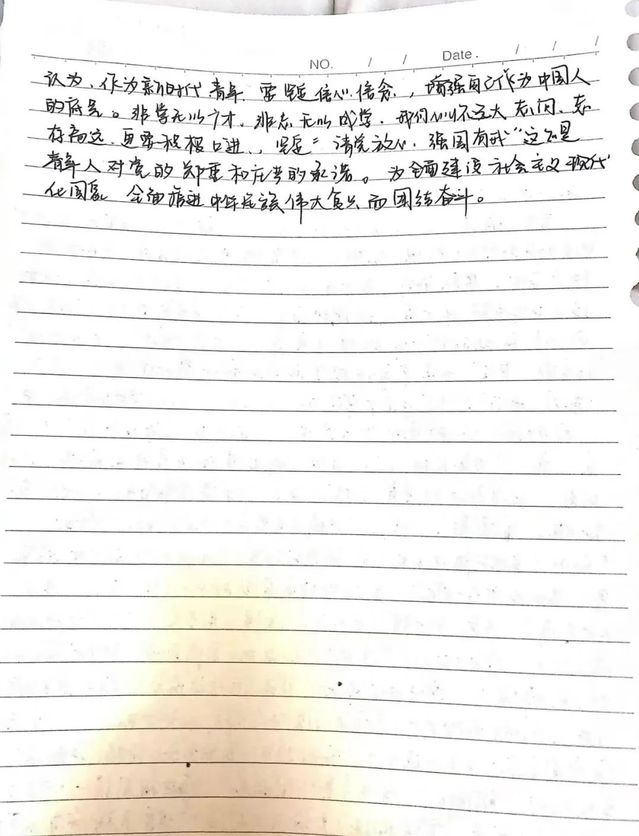 NO. / / Date. / / /
认为,作为新时代青年,要坚定信心信念,增强自己作为中国人
的骨气。非学无以广才,非志无以成学,我们心不远大志向,志
存高远,更要积极口进,坚定"请党放心,强国有我"这不是
青年人对党的郑重和庄严的承诺。为全面建设社会主义现代
化国家 全面推进中华民族伟大复兴而团结奋斗。